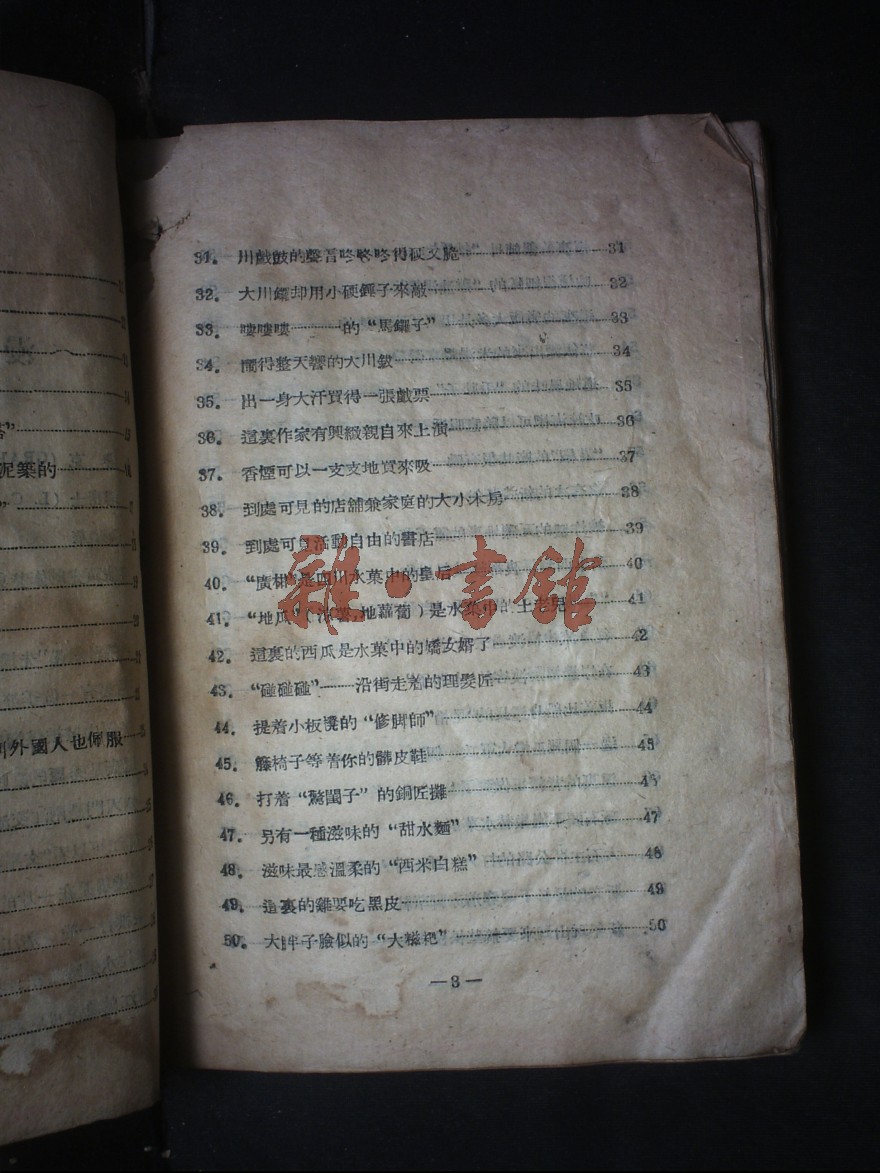 31. 川戲鼓的聲音咚咚咚得硬又脆 31
32. 大川鑼却用小硬錘子來敲 32
33. 嘍嘍嘍——的“馬鑼子” 33
34. 鬧得整天響的大川鈸 34
35. 出一身大汗買得一張戲票 35
36. 這裏作家有興緻親自來上演 36
37. 香煙可以一支支地買來吸 37
38. 到處可見的店舖兼家庭的大小木房 38
39. 到處可見活動自由的書店 39
40. “廣柑”是四川水菓中的皇后 40
41. “地瓜”(地蘿蔔)是水菓中的土老兒 41
42. 這裏的西瓜是水菓中的嬌女婿了 42
43. “碰碰碰”——沿街走着的理髮匠 43
44. 提着小板櫈的“修脚師” 44
45. 籐椅子等着你的髒皮鞋 45
46. 打着“驚閨子”的銅匠攤 46
47. 另有一種滋味的“甜水麵” 47
48. 滋味最感溫柔的“西米白糕” 48
49. 這裏的雞要吃黑皮 49
50. 大胖子臉似的“大糍粑” 50
—3—
泥築的
外國人也佩服
雜·書館